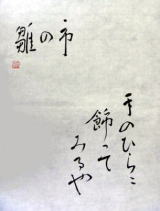 手のひらに
飾って
みるや
雛の市